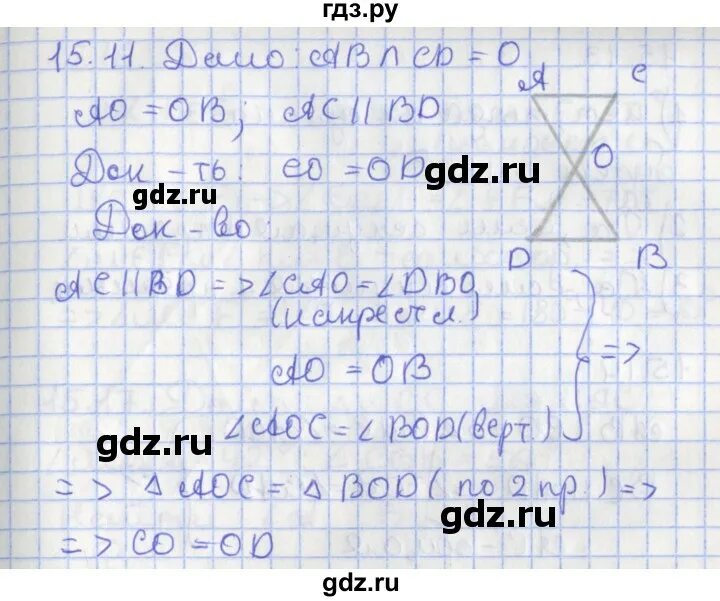 гдз.ру
15.11. Дано: AB ∩ CD = O
A C
AO = OB; AC || BD
O
Док-ть: CO = OD
gdz.ru gdz.ru
Док-во:
D B
AC || BD => ∠CAO = ∠DBO
(накрест л.)
=>
AO = OB
∠AOC = ∠BOD (верт.)
gdz.ru
=> △ AOC = △ BOD (по 2 пр.) =>
gdz.ru
=> CO = OD
gdz.ru